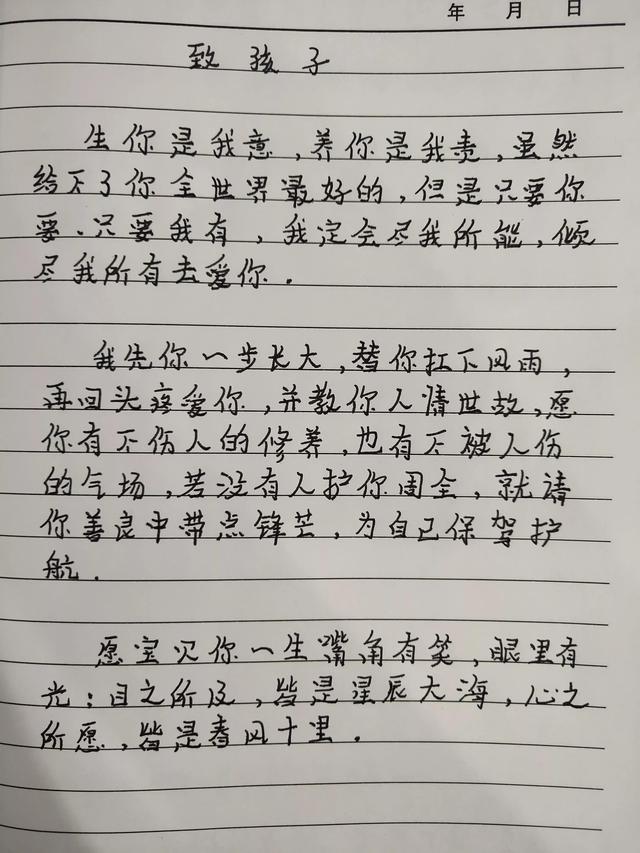 年 月 日
致孩子
生你是我意，养你是我责，虽然
给不了你全世界最好的，但是只要你
要、只要我有，我定会尽我所能，倾
尽我所有去爱你.
我先你一步长大，替你扛下风雨，
再回头疼爱你，并教你人情世故，愿
你有不伤人的修养，也有不被人伤
的气场，若没有人护你周全，就请
你善良中带点锋芒，为自己保驾护
航.
愿宝贝你一生嘴角有笑，眼里有
光；目之所及，皆是星辰大海，心之
所愿，皆是春风十里.